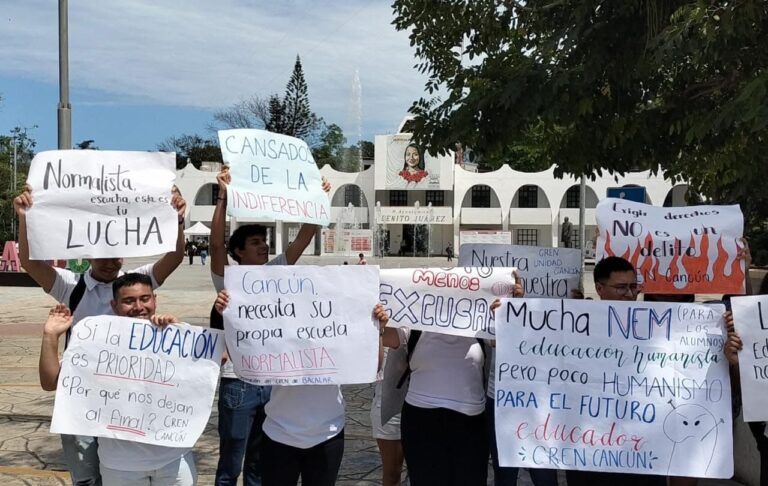 Normalista,
escucha, esta es
tu
LUCHA
CANSADOS
DE LA
INDIFERENCIA
H. Ayuntamiento
BENITO JUÁREZ
Exigir derechos
NO es un
delito
CREN Cancún
Nuestra
CREN
UNIDAD
CANCÚN
nuestra
Menos
EXCUSAS
Cancún,
necesita su
propia escuela
NORMALISTA
CREN de BACALAR
Si la EDUCACIÓN
es PRIORIDAD,
¿Por qué nos dejan
al final? CREN
CANCÚN
Mucha NEM (PARA LOS ALUMNOS)
educación humanista
pero poco HUMANISMO
PARA EL FUTURO
educador
CREN CANCÚN